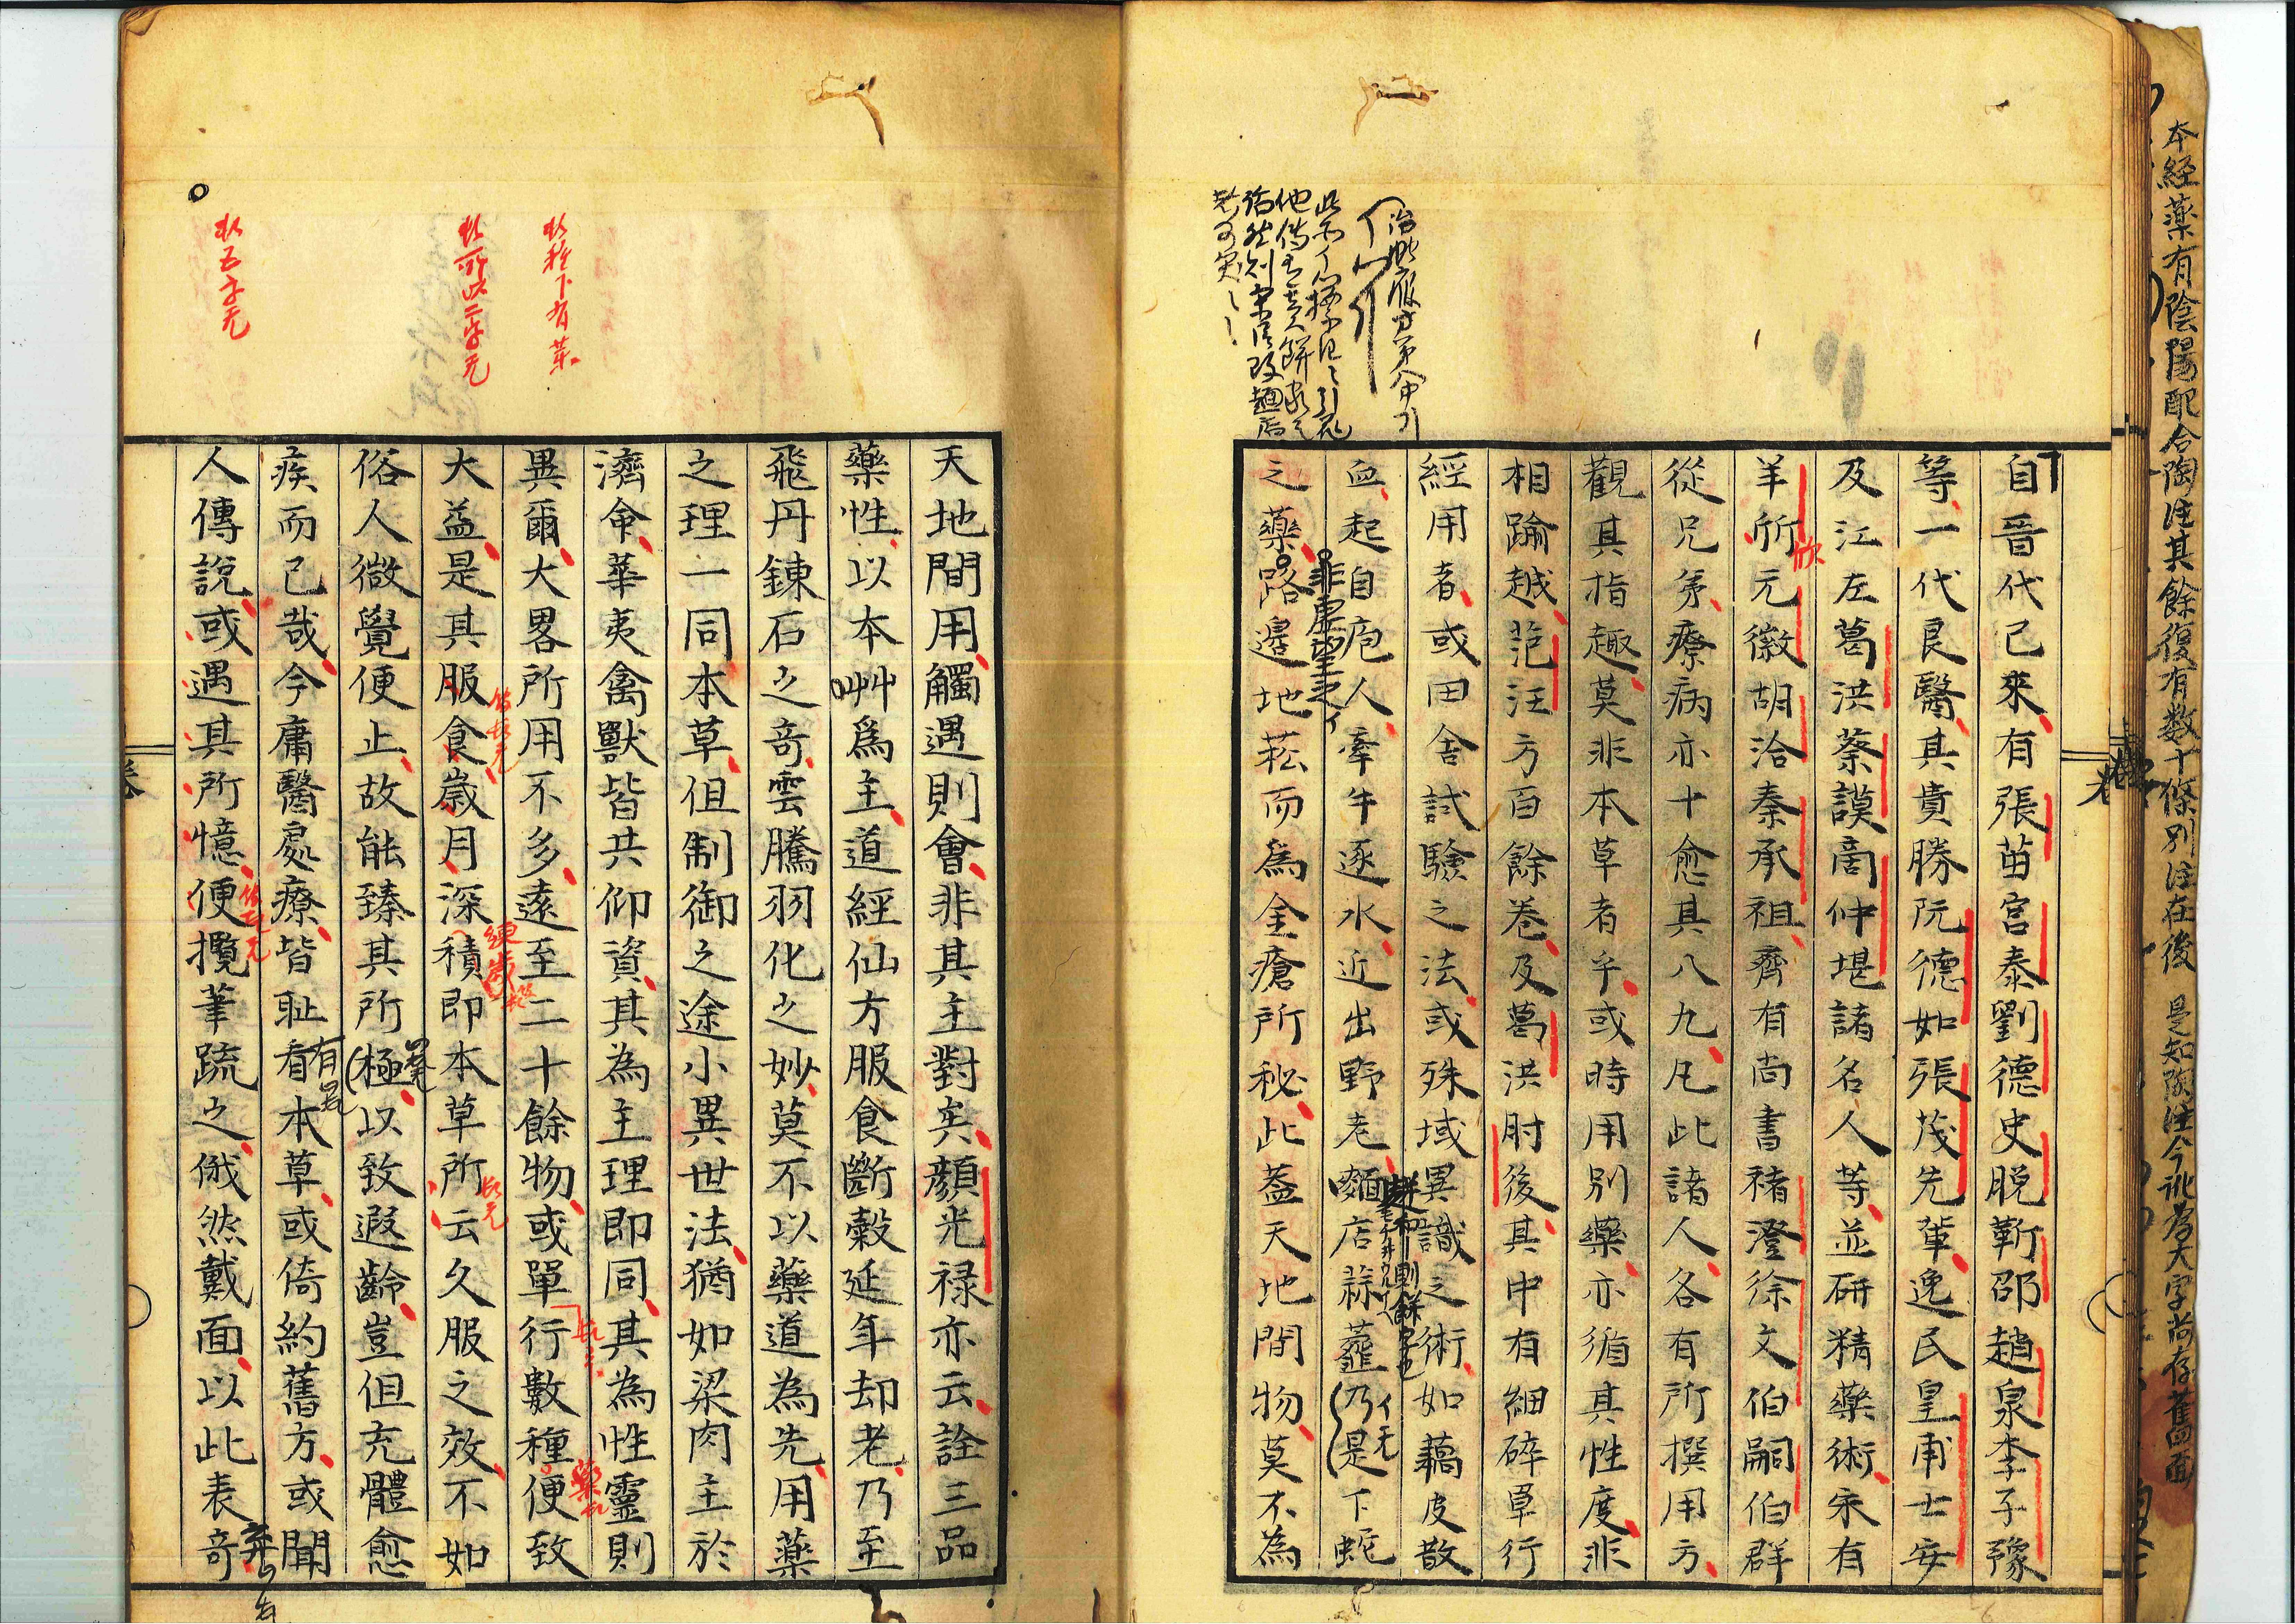 本経薬有陰陽配合陶注其餘復有数十條別注在後　是知陶注今訛為大字尚存舊面
自晋代已來有張苗宮泰劉德史脱靳邵趙泉李子豫
等一代良醫其貴勝阮德如張茂先輩逸民皇甫士安
及江左葛洪蔡謨啇仲堪諸名人等並研精藥術宋有
羊所元徽胡洽秦承祖齊有尚書褚澄徐文伯嗣伯群
欣
從兄弟療病亦十愈其八九凡此諸人各有所撰用方
觀其指趣莫非本草者乎或時用別藥亦循其性度非
相踰越范汪方百餘卷及葛洪肘後其中有細碎單行
經用者或田舍試驗之法或殊域異識之術如藕皮散
血起自庖人牽牛逐水近出野老麵店蒜虀乃是下蛇
イ无
非虚望之イ
之藥路邊地菘而為金瘡所秘此盖天地間物莫不為
天地間用觸遇則會非其主對矣顔光禄亦云詮三品
藥性以本艸爲主道經仙方服食斷穀延年却老乃至
飛丹錬石之奇雲騰羽化之妙莫不以藥道為先用藥
之理一同本草但制御之途小異世法猶如梁肉主於
濟命華夷禽獸皆共仰資其為主理即同其為性靈則
異爾大畧所用不多遠至二十餘物或單行數種便致
大益是其服食歳月深積即本草所云久服之效不如
俗人微覺便止故能臻其所極以致遐齡豈但充體愈
疾而已哉今庸醫處療皆耻看本草或倚約舊方或聞
人傳說或遇其所憶便攬筆疏之俄然戴面以此表奇